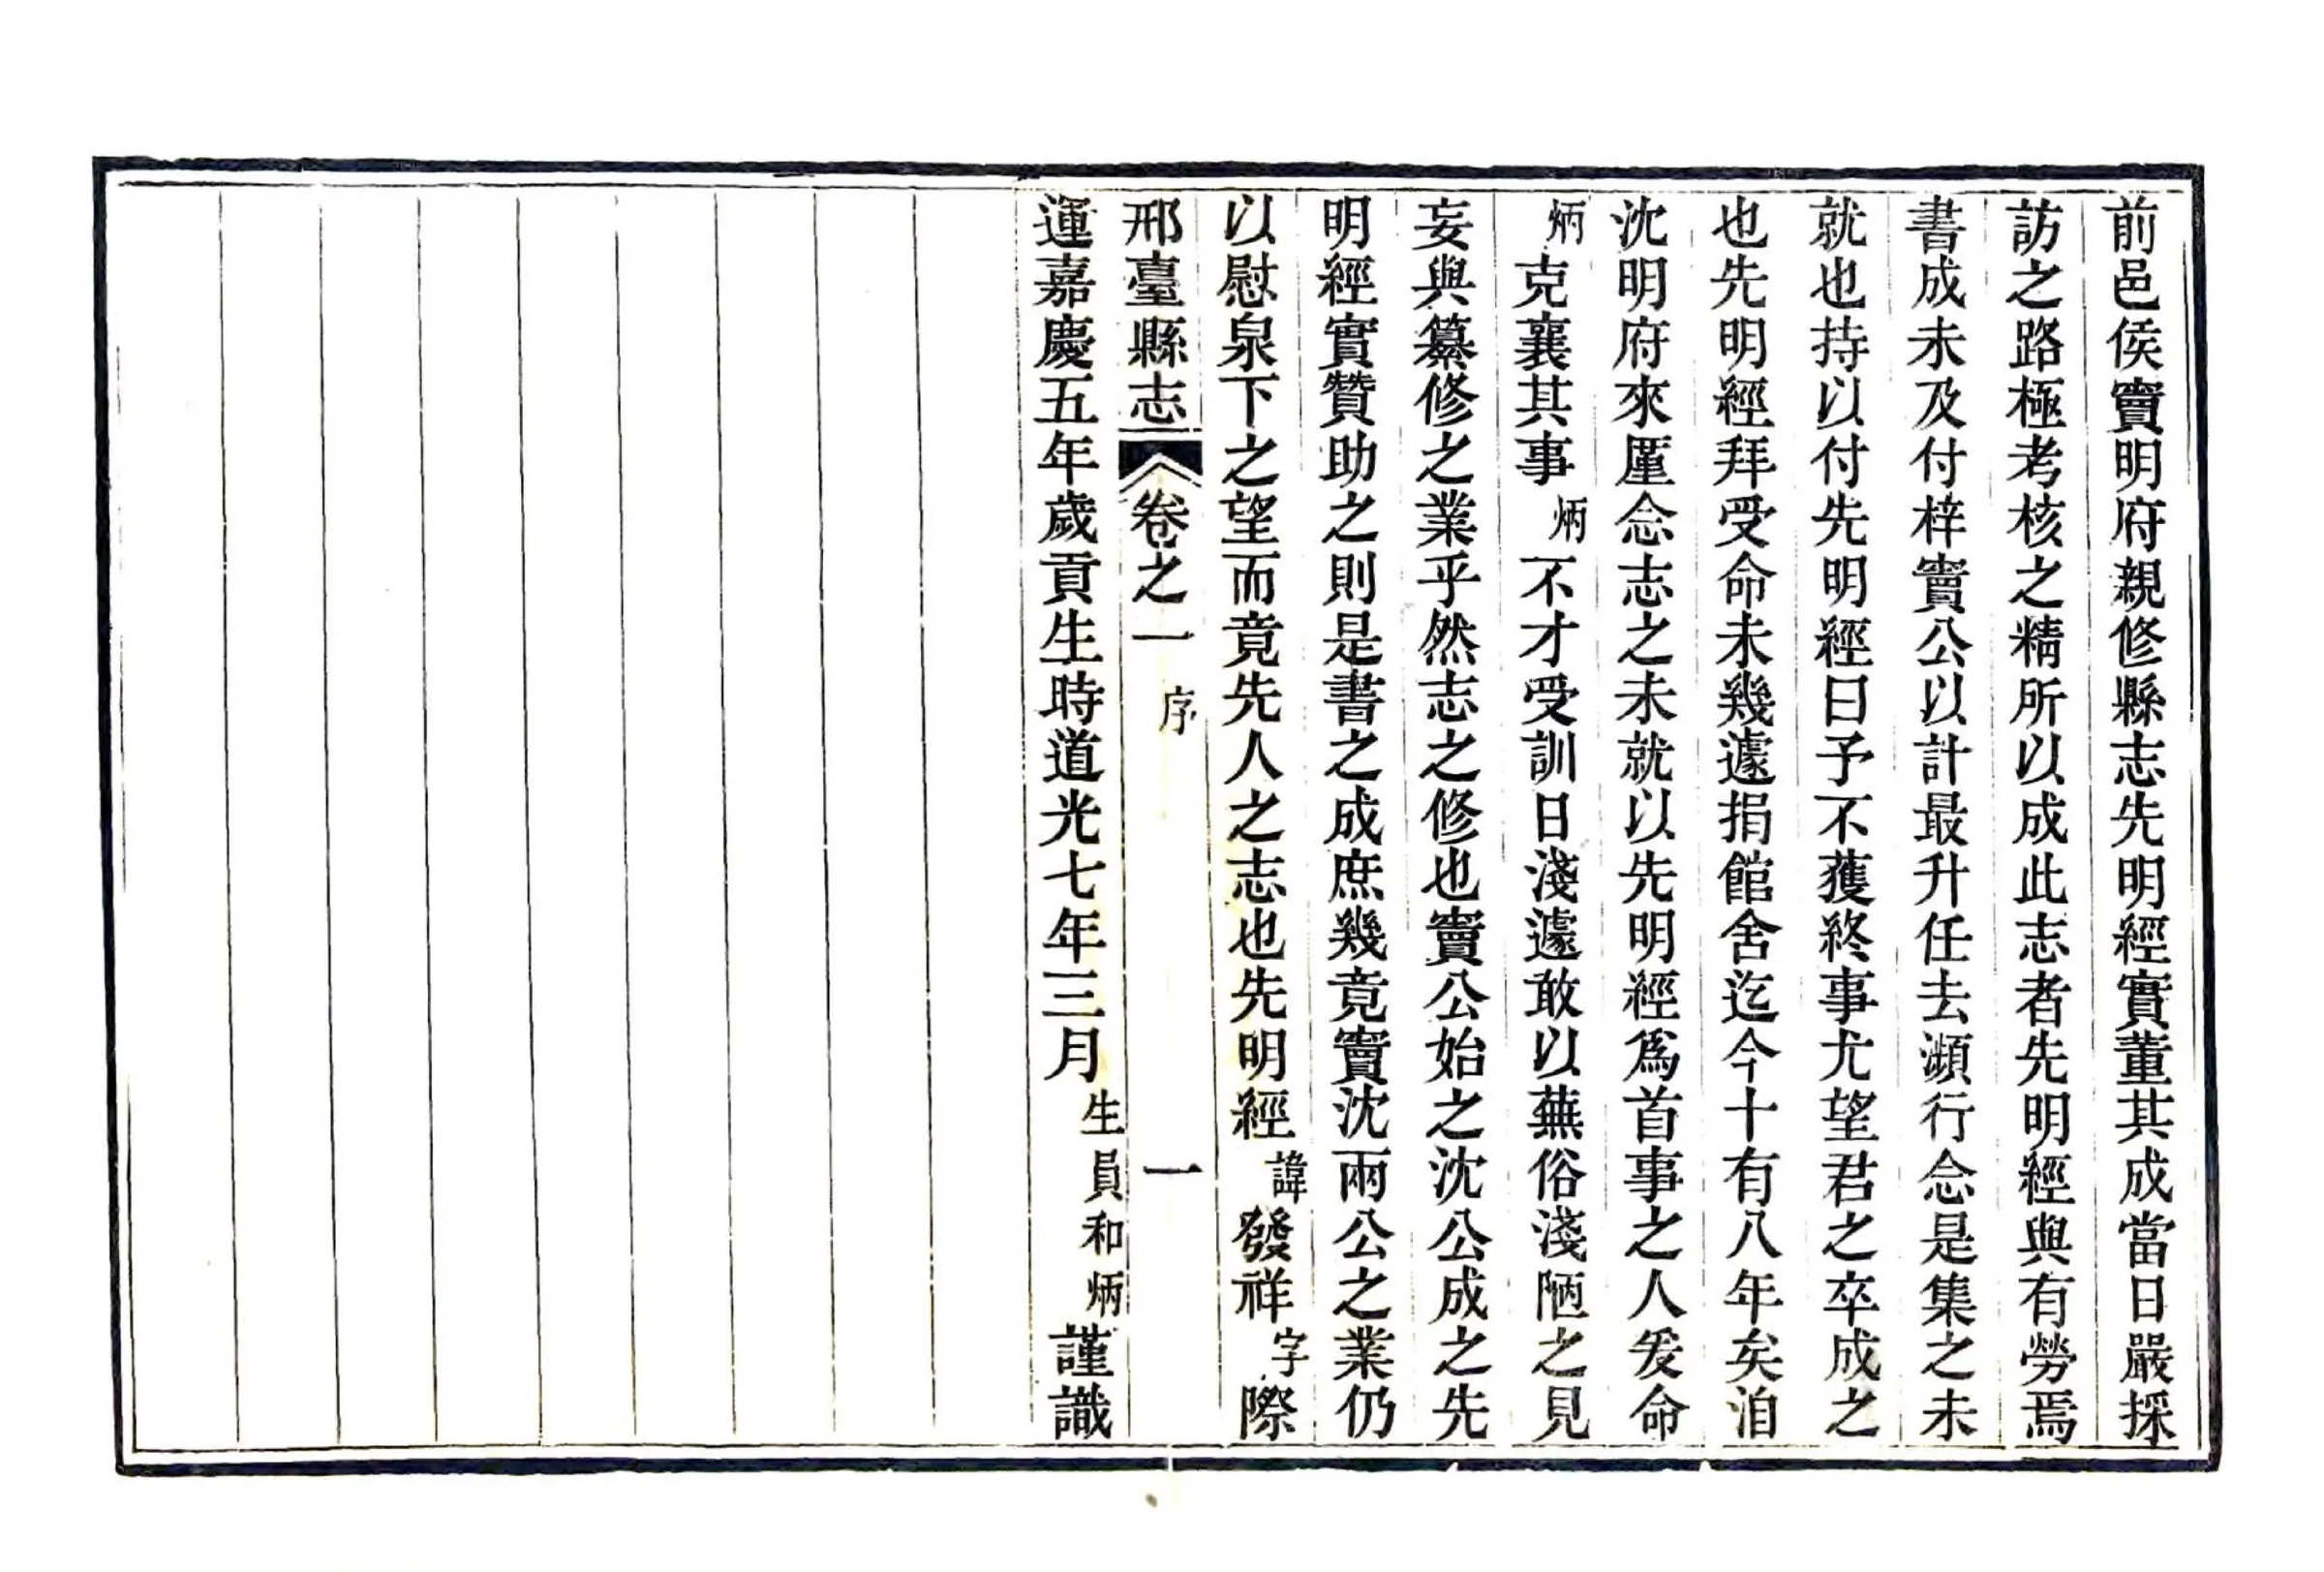 前邑侯竇明府親修縣志先明經實董其成當日嚴採
訪之路極考核之精所以成此志者先明經與有勞焉
書成未及付梓竇公以計最升任去瀕行念是集之未
就也持以付先明經曰予不獲終事尤望君之卒成之
也先明經拜受命未幾遽捐館舍迄今十有八年矣洎
沈明府來厪念志之未就以先明經爲首事之人爰命
炳克襄其事炳不才受訓日淺遽敢以蕪俗淺陋之見
妄與纂修之業乎然志之修也竇公始之沈公成之先
明經實贊助之則是書之成庶幾竟竇沈兩公之業仍
以慰泉下之望而竟先人之志也先明經諱發祥字際
邢臺縣志 卷之一 序 一
運嘉慶五年歲貢生時道光七年三月生員和炳謹識